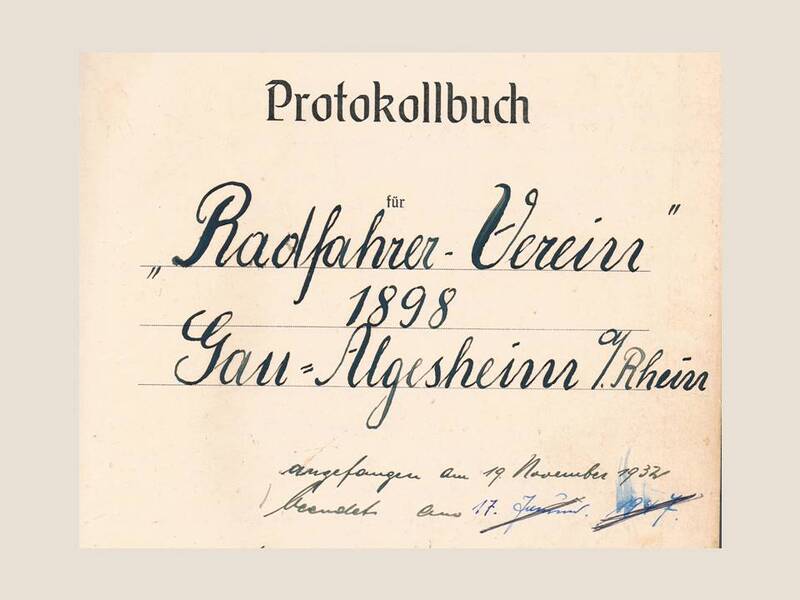 Protokollbuch
für
„Radfahrer-Verein"
1898
Gau=Algesheim a/Rhein
angefangen am 19. November 1932
beendet am 17.